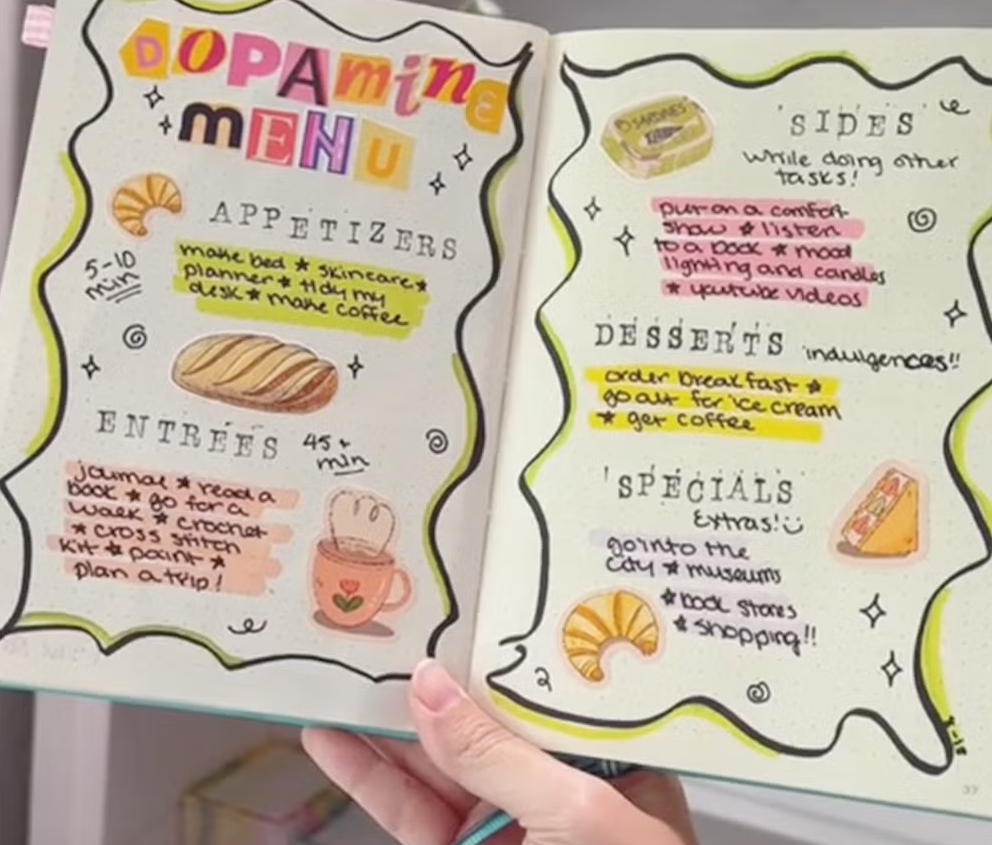 DOPAMINE
MENU
APPETIZERS
5-10
min
make bed ★ skincare ★
planner ★ tidy my
desk ★ make coffee
ENTRÉES
45+
min
journal ★ read a
book ★ go for a
walk ★ crochet
★ cross stitch
kit ★ paint ★
plan a trip!
SARDINES
'SIDES'
while doing other
tasks!
put on a comfort
show ★ listen
to a book ★ mood
lighting and candles
★ youtube videos
DESSERTS
'indulgences!!
order breakfast ★
go out for ice cream
★ get coffee
'SPECIALS
Extras!
go into the
city ★ museums
★ book stores
★ shopping!!
37